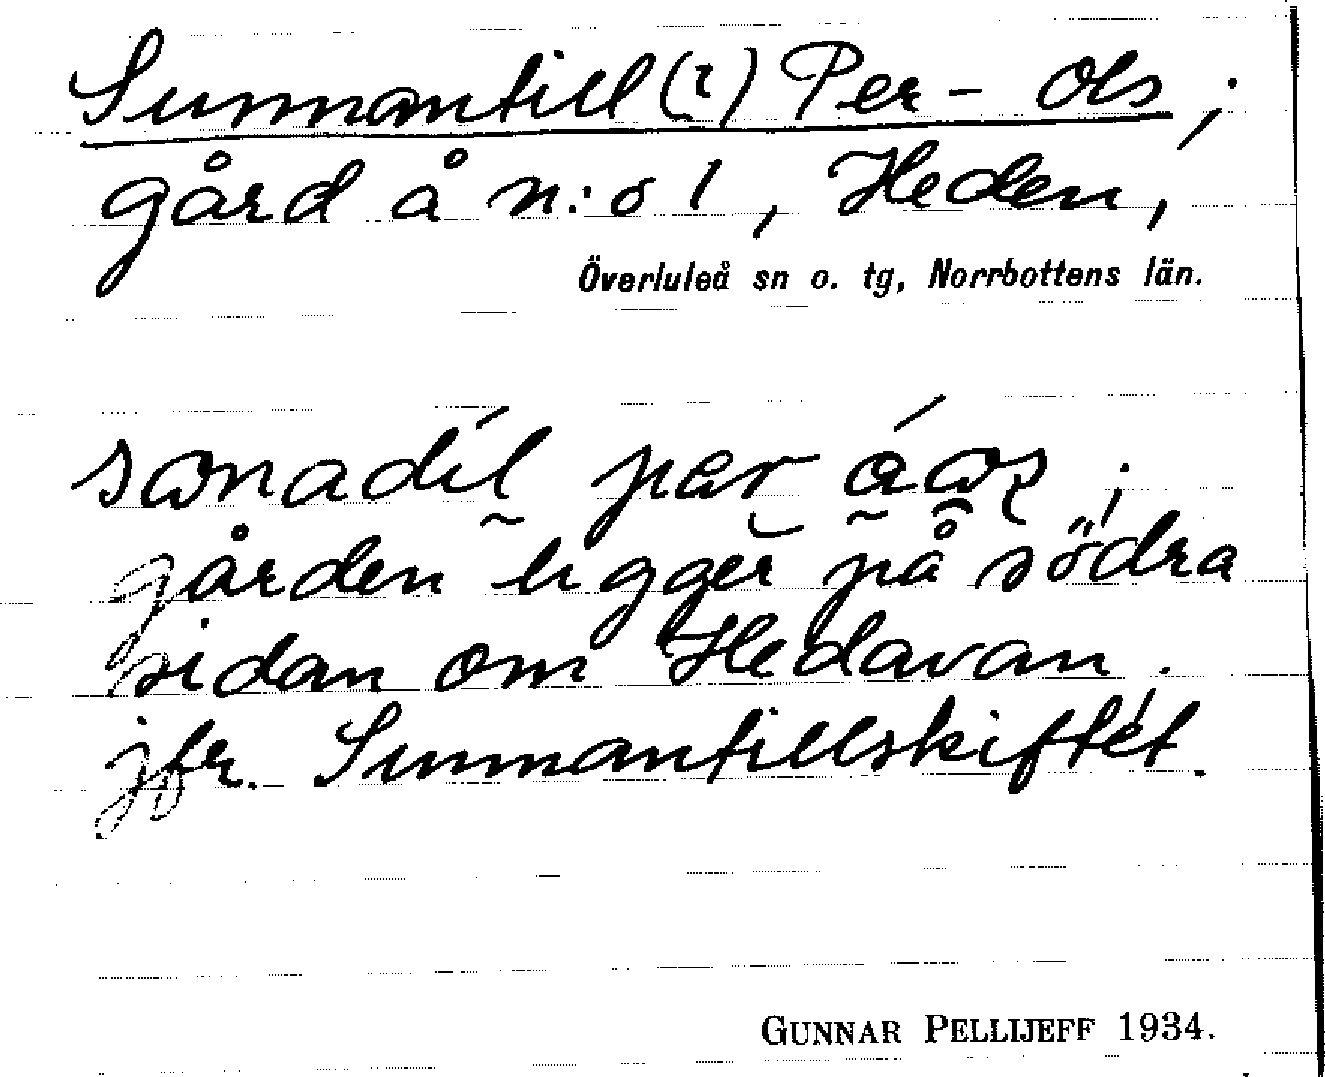 Sunnantill(?) Per-Ols;
gård å n:o 1, Heden,
Överluleå sn o. tg, Norrbottens län.
gården ligger på södra
sidan om Hedavan.
jfr. Sunnantillskiftet.
GUNNAR PELLIJEFF 1934.